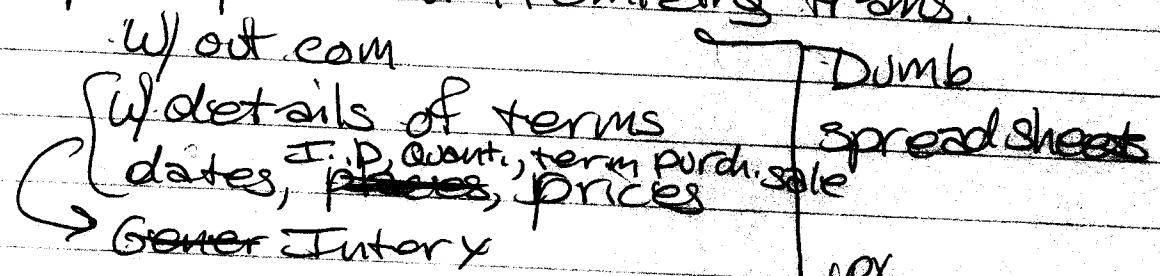 trans.
W/ out com
W/ details of terms
I.D, Quant., term purch. sale
dates, prices
Intory
Dumb
spread sheets